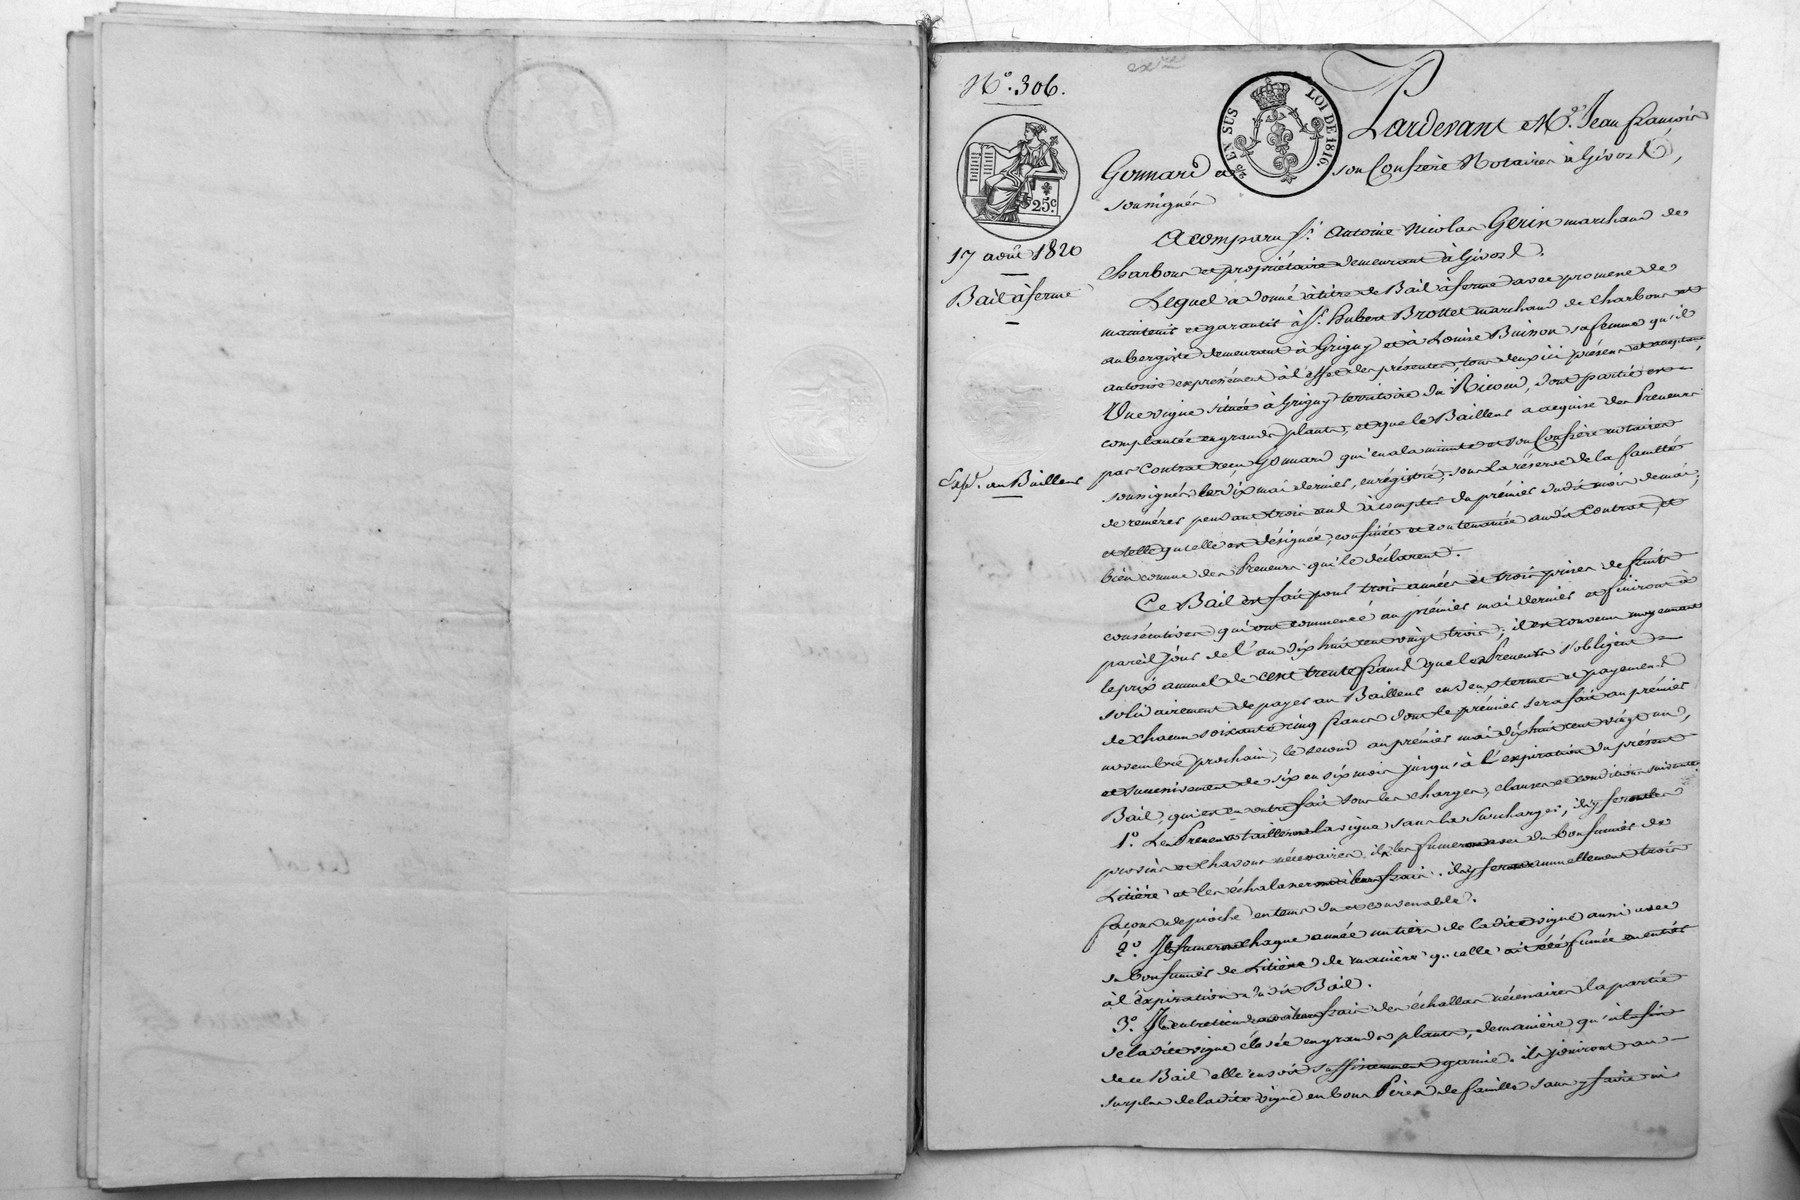 N.º 306.
25.c
2/10 EN SUS LOI DE 1816.
17 août 1820
Bail à ferme
Exp.on au Bailleur
Pardevant M.e Jean françois
Gonnard et son Confrère Notaires à Givors,
soussignés
A comparu S.r Antoine Nicolas Gerin marchand de
charbons et propriétaire demeurant à Givors.
Lequel a donné à titre de Bail à ferme avec promesse de
maintenir et garantir à S.r hubert Brottet marchand de charbons et
aubergiste demeurant à Grigny et à Louise Buisson sa femme qu'il
autorise expressément à l'effet des présentes, tous deux ici présens et acceptans,
Une vigne située à Grigny territoire du Nicou, dont partie est
complantée en grands plants, et que le Bailleur a acquise des Preneurs
par Contrat reçu Gonnard qui en a la minute et son Confrère notaires
soussignés le dix mai dernier, enrégistré, sous la réserve de la faculté
de réméré pendant trois ans à compter du prémier dudit mois de mai;
et telle qu'elle est désignée, confinée et contenancée audit Contrat, et
bien connue des Preneurs qui le déclarent.
Ce Bail est fait pour trois années et trois prises de fruits
consécutives qui ont commencé au prémier mai dernier et finiront à
pareil jour de l'an dix huit cent vingt trois; il est convenu moyennant
le prix annuel de cent trente francs que les Preneurs s'obligent
solidairement de payer au Bailleur en deux termes et payemens
de chacun soixante cinq francs dont le prémier sera fait au prémier
novembre prochain, le second au prémier mai dix huit cent vingt un,
et successivement de six en six mois jusqu'à l'expiration du présent
Bail, qui est en outre fait sous les charges, clauses et conditions suivantes
1.º Les Preneurs tailleront la vigne sans la surcharger, ils y feront les
provins et chavons nécessaires, ils les fumeront avec du bon fumier de
Litière et les échalasseront à leurs frais. ils y feront annuellement trois
façons de pioche en tems du et convenable.
2.º Ils fumeront chaque année un tiers de la dite vigne aussi avec
du bon fumier de Litière de manière qu'elle ait été fumée en entier
à l'expiration du dit Bail.
3.º Ils entretiendront à leurs frais des échallas nécessaires la partie
de la dite vigne élevée en grands plants, de manière qu'à la fin
de ce Bail elle en soit suffisamment garnie. ils jouiront au
surplus de la dite vigne en bons Pères de famille sans y faire ni